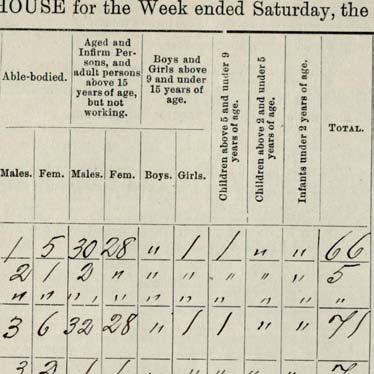 HOUSE for the Week ended Saturday, the
Able-bodied.
Aged and
Infirm Per-
sons, and
adult persons
above 15
years of age,
but not
working.
Boys and
Girls above
9 and under
15 years of
age.
Children above 5 and under 9
years of age.
Children above 2 and under 5
years of age.
Infants under 2 years of age.
TOTAL.
Males. Fem. Males. Fem. Boys. Girls.
1 5 30 28 " 1 1 " " 66
2 1 2 " " " " " " 5
" " " " " " " " " "
3 6 32 28 " 1 1 " " 71